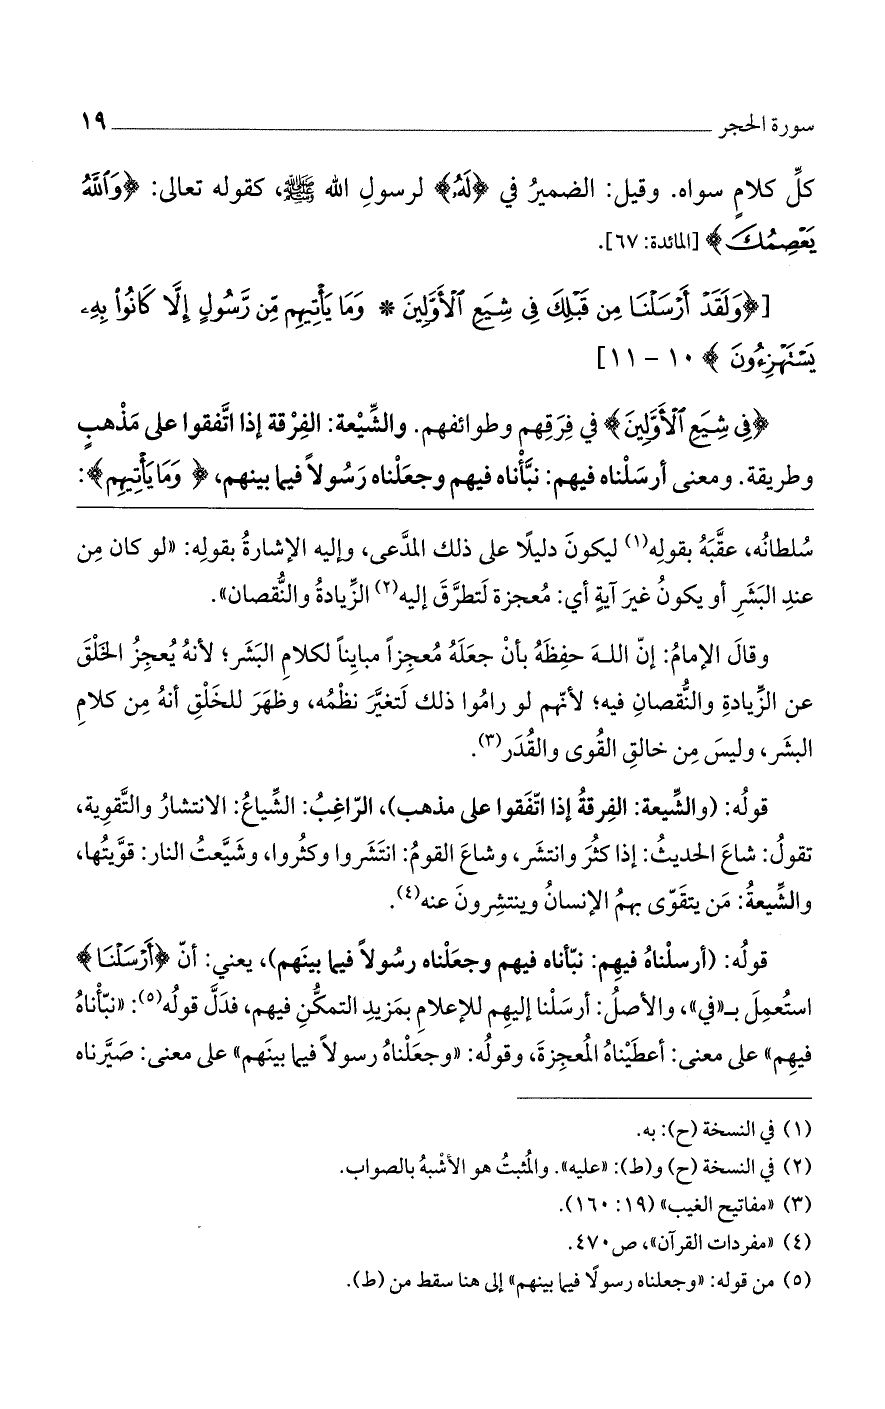 سورة الحجر ١٩
كلِّ كلامٍ سواه. وقيل: الضميرُ في ﴿لَهُۥ﴾ لرسولِ الله ﷺ، كقوله تعالى: ﴿وَٱللَّهُ
يَعْصِمُكَ﴾ [المائدة: ٦٧].
[﴿وَلَقَدْ أَرْسَلْنَا مِن قَبْلِكَ فِى شِيَعِ ٱلْأَوَّلِينَ * وَمَا يَأْتِيهِم مِّن رَّسُولٍ إِلَّا كَانُوا۟ بِهِۦ
يَسْتَهْزِءُونَ﴾ ١٠ – ١١]
﴿فِى شِيَعِ ٱلْأَوَّلِينَ﴾ في فِرَقِهم وطوائفهم. والشِّيْعة: الفِرْقة إذا اتَّفقوا على مَذْهبٍ
وطريقة. ومعنى أرسَلْناه فيهم: نبَّأْناه فيهم وجعَلْناه رَسُولاً فيما بينهم، ﴿وَمَا يَأْتِيهِم﴾:
سُلطانُه، عقَّبَهُ بقولِه(١) ليكونَ دليلًا على ذلك المدَّعى، وإليه الإشارةُ بقولِه: «لو كان مِن
عندِ البَشَرِ أو يكونُ غيرَ آيةٍ أي: مُعجزة لَتطرَّقَ إليه(٢) الزِّيادةُ والنُّقصان».
وقالَ الإمامُ: إنّ اللـهَ حفِظَهُ بأنْ جعَلَهُ مُعجزاً مبايِناً لكلامِ البَشَر؛ لأنهُ يُعجِزُ الخَلْقَ
عن الزِّيادةِ والنُّقصانِ فيه؛ لأنّهم لو رامُوا ذلك لَتغيَّرَ نظْمُه، وظهَرَ للخَلْقِ أنهُ مِن كلامِ
البشَر، وليسَ مِن خالقِ القُوى والقُدَر(٣).
قولُه: (والشِّيعة: الفِرقةُ إذا اتّفَقوا على مذهب)، الرّاغِبُ: الشِّياعُ: الانتشارُ والتَّقوية،
تقولُ: شاعَ الحديثُ: إذا كثُرَ وانتشَر، وشاعَ القومُ: انتَشَروا وكثُروا، وشيَّعتُ النار: قوَّيتُها،
والشِّيعةُ: مَن يتقَوّى بهمُ الإنسانُ وينتشِرونَ عنه(٤).
قولُه: (أرسلْناهُ فيهِم: نبّأناه فيهم وجعَلْناه رسُولاً فيما بينَهم)، يعني: أنّ ﴿أَرْسَلْنَا﴾
استُعمِلَ بـ«في»، والأصلُ: أرسَلْنا إليهِم للإعلامِ بمَزيدِ التمكُّنِ فيهم، فدَلَّ قولُه(٥): «نبّأناهُ
فيهِم» على معنى: أعطَيْناهُ المُعجِزةَ، وقولُه: «وجعَلْناهُ رسولاً فيما بينَهم» على معنى: صَيَّرناه
(١) في النسخة (ح): به.
(٢) في النسخة (ح) و(ط): «عليه». والمُثبتُ هو الأشْبهُ بالصواب.
(٣) «مفاتيح الغيب» (١٩: ١٦٠).
(٤) «مفردات القرآن»، ص٤٧٠.
(٥) من قوله: «وجعلناه رسولًا فيما بينهم» إلى هنا سقط من (ط).